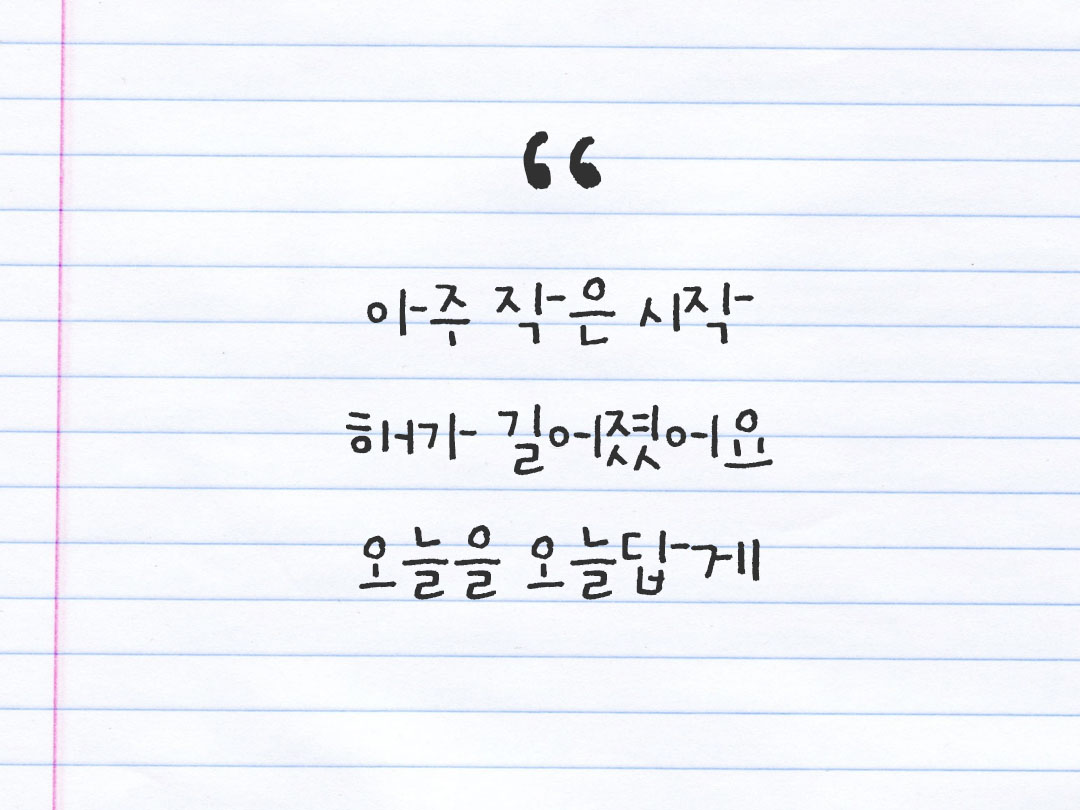 “
아주 작은 시작
해가 길어졌어요
오늘을 오늘답게